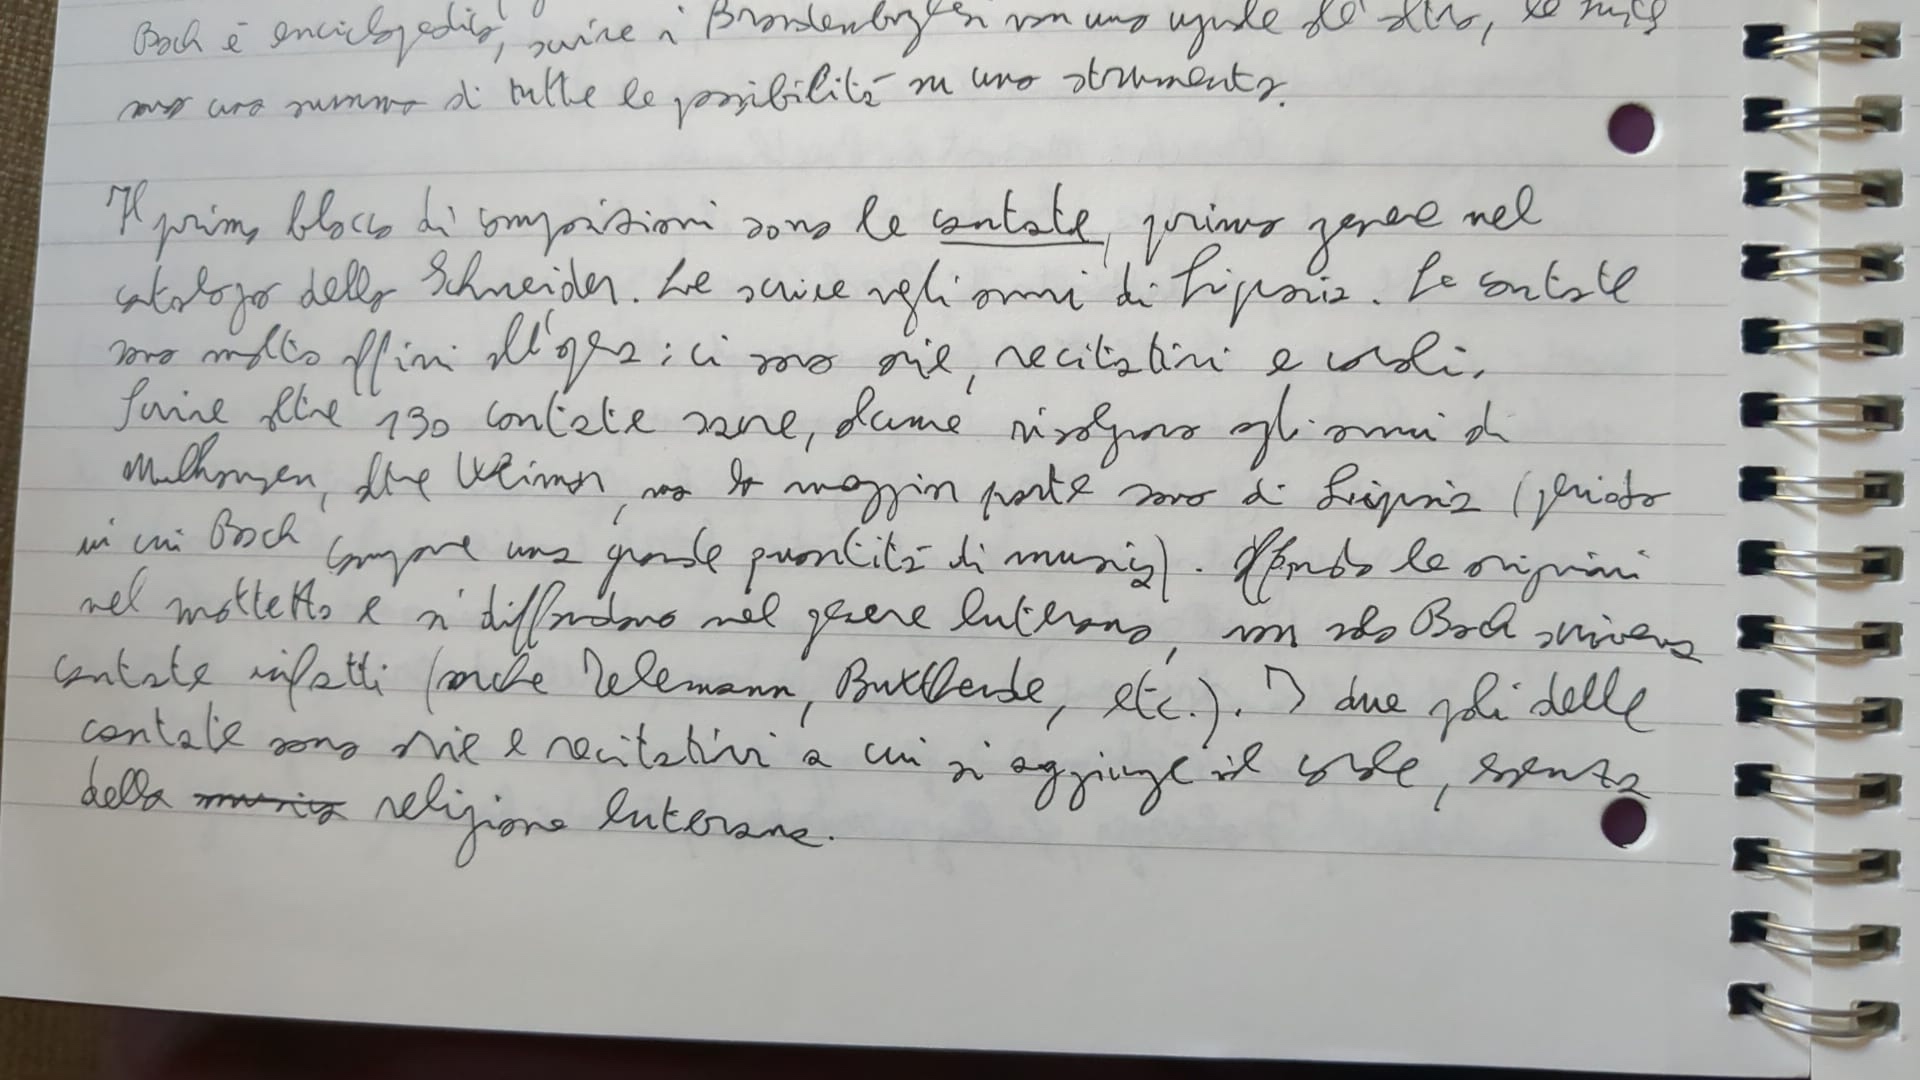 Bach è enciclopedico, scrive i Brandenburghesi non uno uguale all'altro, le suite
sono una summa di tutte le possibilità su uno strumento.
Il primo blocco di composizioni sono le cantate, primo genere nel
catalogo dello Schneider. Le scrive negli anni di Lipsia. Le cantate
sono molto affini all'opera: ci sono arie, recitativi e corali.
Scrive oltre 130 cantate sacre, alcune risalgono agli anni di
Mulhausen, altre Weimar, ma la maggior parte sono di Lipsia (periodo
in cui Bach compone una grande quantità di musica). Affondano le origini
nel mottetto e si diffondono nel genere luterano, non solo Bach scriveva
cantate infatti (anche Telemann, Buxtheude, etc.). I due poli delle
cantate sono arie e recitativi a cui si aggiunge il corale, essenza
della musica religione luterana.